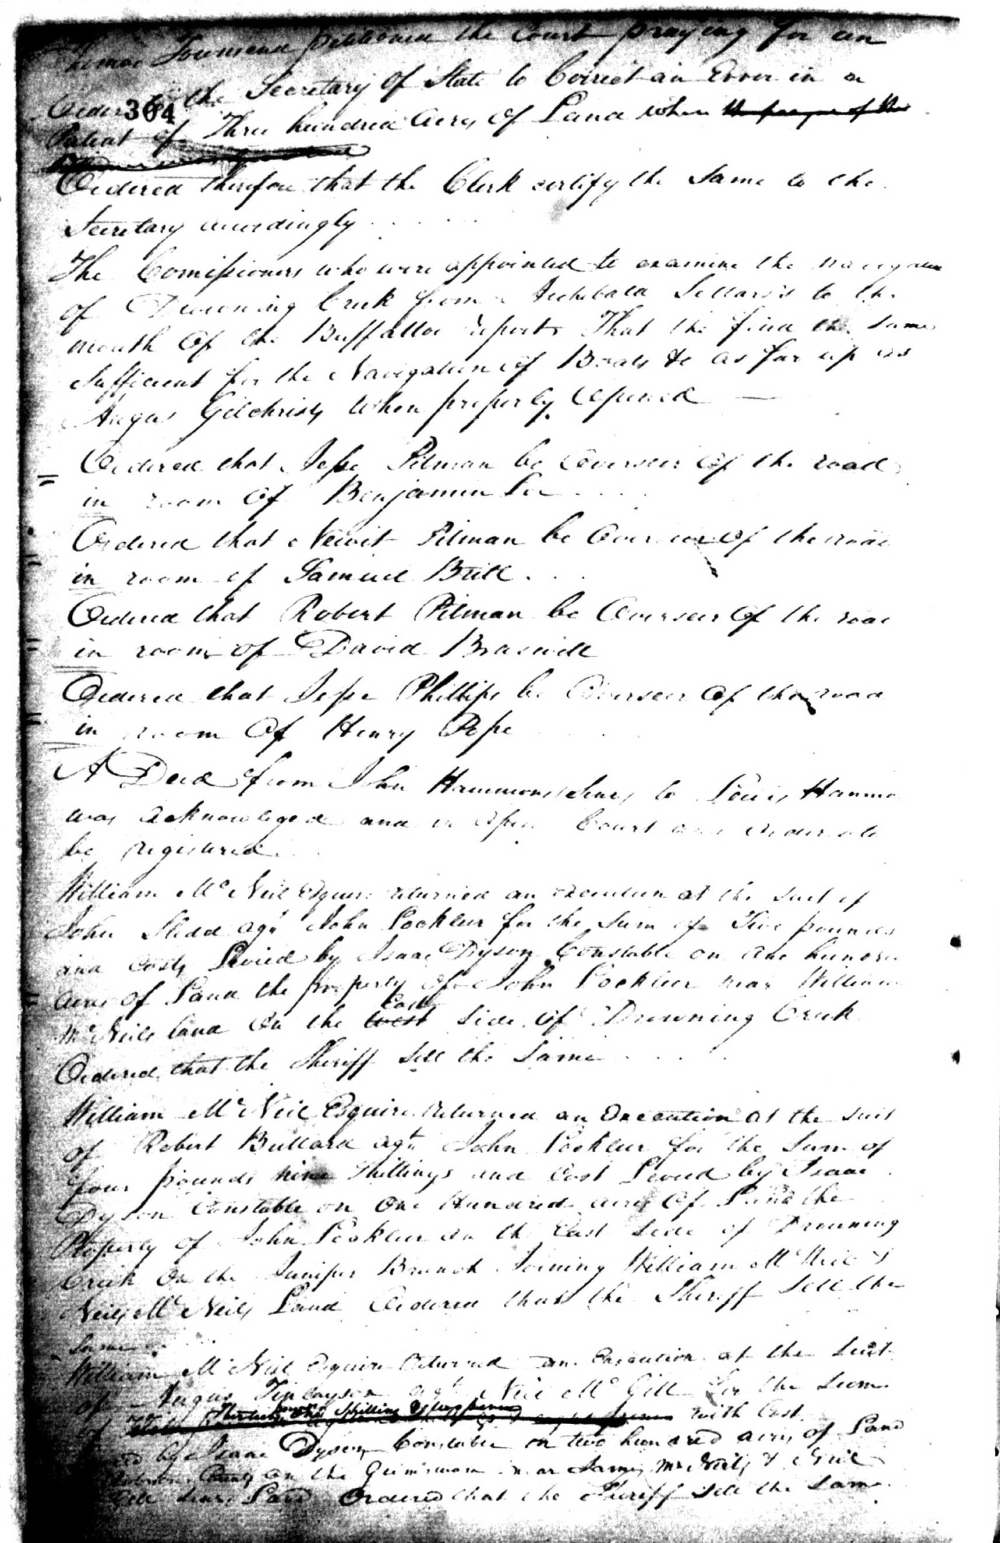 Thomas Townsend petitioned the Court praying for an
Order to the Secretary Of State to Correct an Error in a
364
Patent of Three hundred Acres Of Land when
Ordered therefore that the Clerk certify the Same to the
Secretary accordingly
The Comissioners who were appointed to examine the navigation
of Drowning Creek from Archibald Sellars's to the
mouth Of the Buffalloe reports That the find the Same
Sufficient for the Navigation of Boats &c as far up as
Angus Gilchrists When properly Opened
Ordered that Jesse Pitman be Overseer Of the road
in room Of Benjamin Lee
Ordered that Newit Pitman be Overseer Of the road
in room of Samuel Britt
Ordered that Robert Pitman be Overseer Of the road
in room of David Braswell
Ordered that Jesse Phillips be Overseer Of the road
in room Of Henry Pope
A Deed from John Hammons Senr, to Lewis Hammo
was acknowleged and in Open Court and ordered to
be registered
William McNeil Esquire returned an execution at the Suit of
John agt John Locklear for the Sum of Five pounds
and Costs Levied by Isaac Dyson Constable on One hundred
Acres of Land the property Of John Locklear near William
McNeils land On the East Side of Drowning Creek
Ordered that the Sheriff Sell the Same
William McNeil Esquire Returned an Execution at the Suit
of Robert Bullard agt John Locklear for the Sum of
four pounds nine Shillings and Cost Levied by Isaac
Dyson Constable on One Hundred acres Of Land the
Property of John Locklear on the East Side of Drowning
Creek On the Juniper Branch Joining William McNeil &
Neil McNeils Land Ordered that the Sheriff Sell the
Same
William McNeil Esquire Returned an Execution at the Suit
of Angus Finlayson agt Neil McGill for the Sum
of with Cost
by Isaac Dyson Constable on two hundred acres of Land
County on the near James McNeils & Neil
Land Ordered that the Sheriff Sell the Same